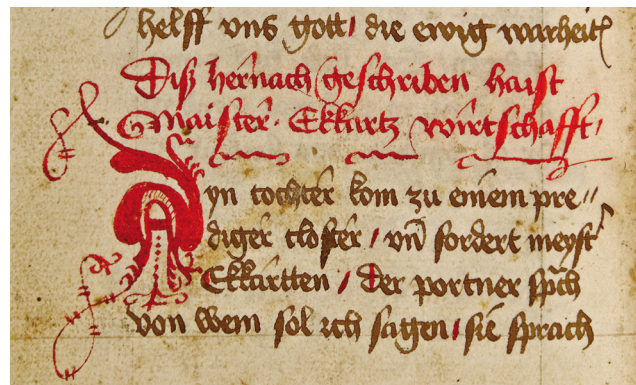 helff vns gott / die ewig warheit
Diß hernach geschriben haist
Maister Ekkartz wirtschafft /
Ayn tochter kom zu einem pre//
diger closter / vn̄ fordert meyst̛
Ekkartten / Der portner sp̄ch
von wem sol ich sagen / sie sprach